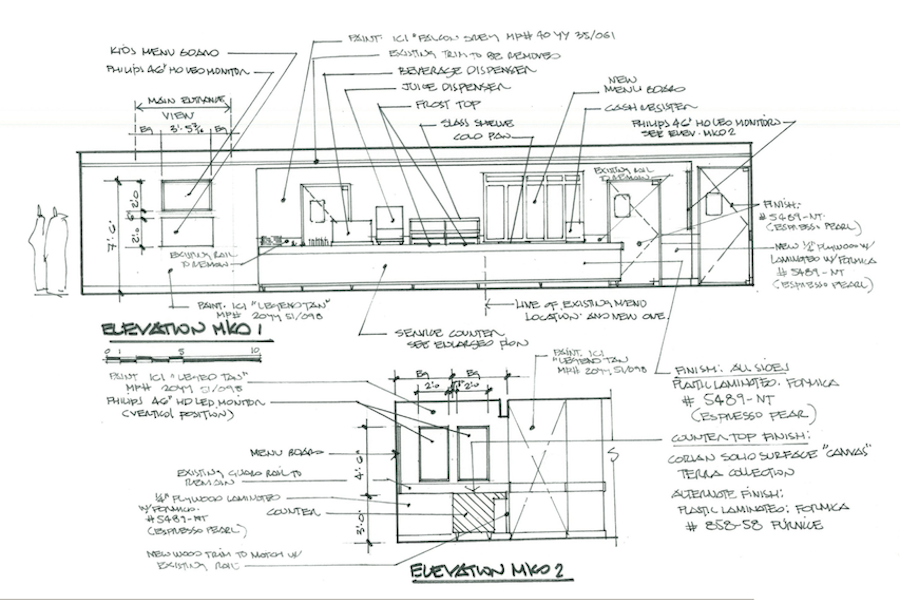 KIDS MENU BOARD
PHILIPS 46" HD LED MONITOR
MAIN ENTRANCE
VIEW
EQ 3'-5 3/16 EQ
PAINT: ICI "FALCON GREY" MP# 40 YY 35/061
EXISTING TRIM TO BE REMOVED
BEVERAGE DISPENSER
JUICE DISPENSER
FROST TOP
GLASS SHELVE
COLD PAN
NEW
MENU BOARD
CASH REGISTER
PHILIPS 46" HD LED MONITORS
SEE ELEV. MK02
EXISTING RAIL
TO REMAIN
7'-6"
2'-0"
6"
2'-0"
EXISTING RAIL
TO REMAIN
FINISH:
# 5489-NT
(ESPRESSO PEARL)
NEW 1/2" PLYWOOD W/
LAMINATED W/ FORMICA
# 5489-NT
(ESPRESSO PEARL)
PAINT: ICI "LEGEND TAN"
MP# 20YY 51/098
LINE OF EXISTING MENU
LOCATION AND NEW ONE
ELEVATION MK01
0 1 5 10
SERVICE COUNTER
SEE ENLARGED PLAN
PAINT ICI "LEGEND TAN"
MP# 20YY 51/098
PHILIPS 46" HD LED MONITOR
(VERTICAL POSITION)
EQ EQ
2'-0" 2'-0"
PAINT: ICI
"LEGEND TAN
MP# 20YY 51/098
MENU BOARD
EXISTING GUARD RAIL TO
REMAIN
4'-6"
1/2" PLYWOOD LAMINATED
W/ FORMICA
# 5489-NT
(ESPRESSO PEARL)
COUNTER
3'-0"
NEW WOOD TRIM TO MATCH W/
EXISTING RAIL
FINISH: ALL SIDES
PLASTIC LAMINATED: FORMICA
# 5489-NT
(ESPRESSO PEARL)
COUNTER TOP FINISH:
CORIAN SOLID SURFACE "CANVAS"
TERRA COLLECTION
ALTERNATE FINISH:
PLASTIC LAMINATED: FORMICA
# 858-58 PUMICE
ELEVATION MK02